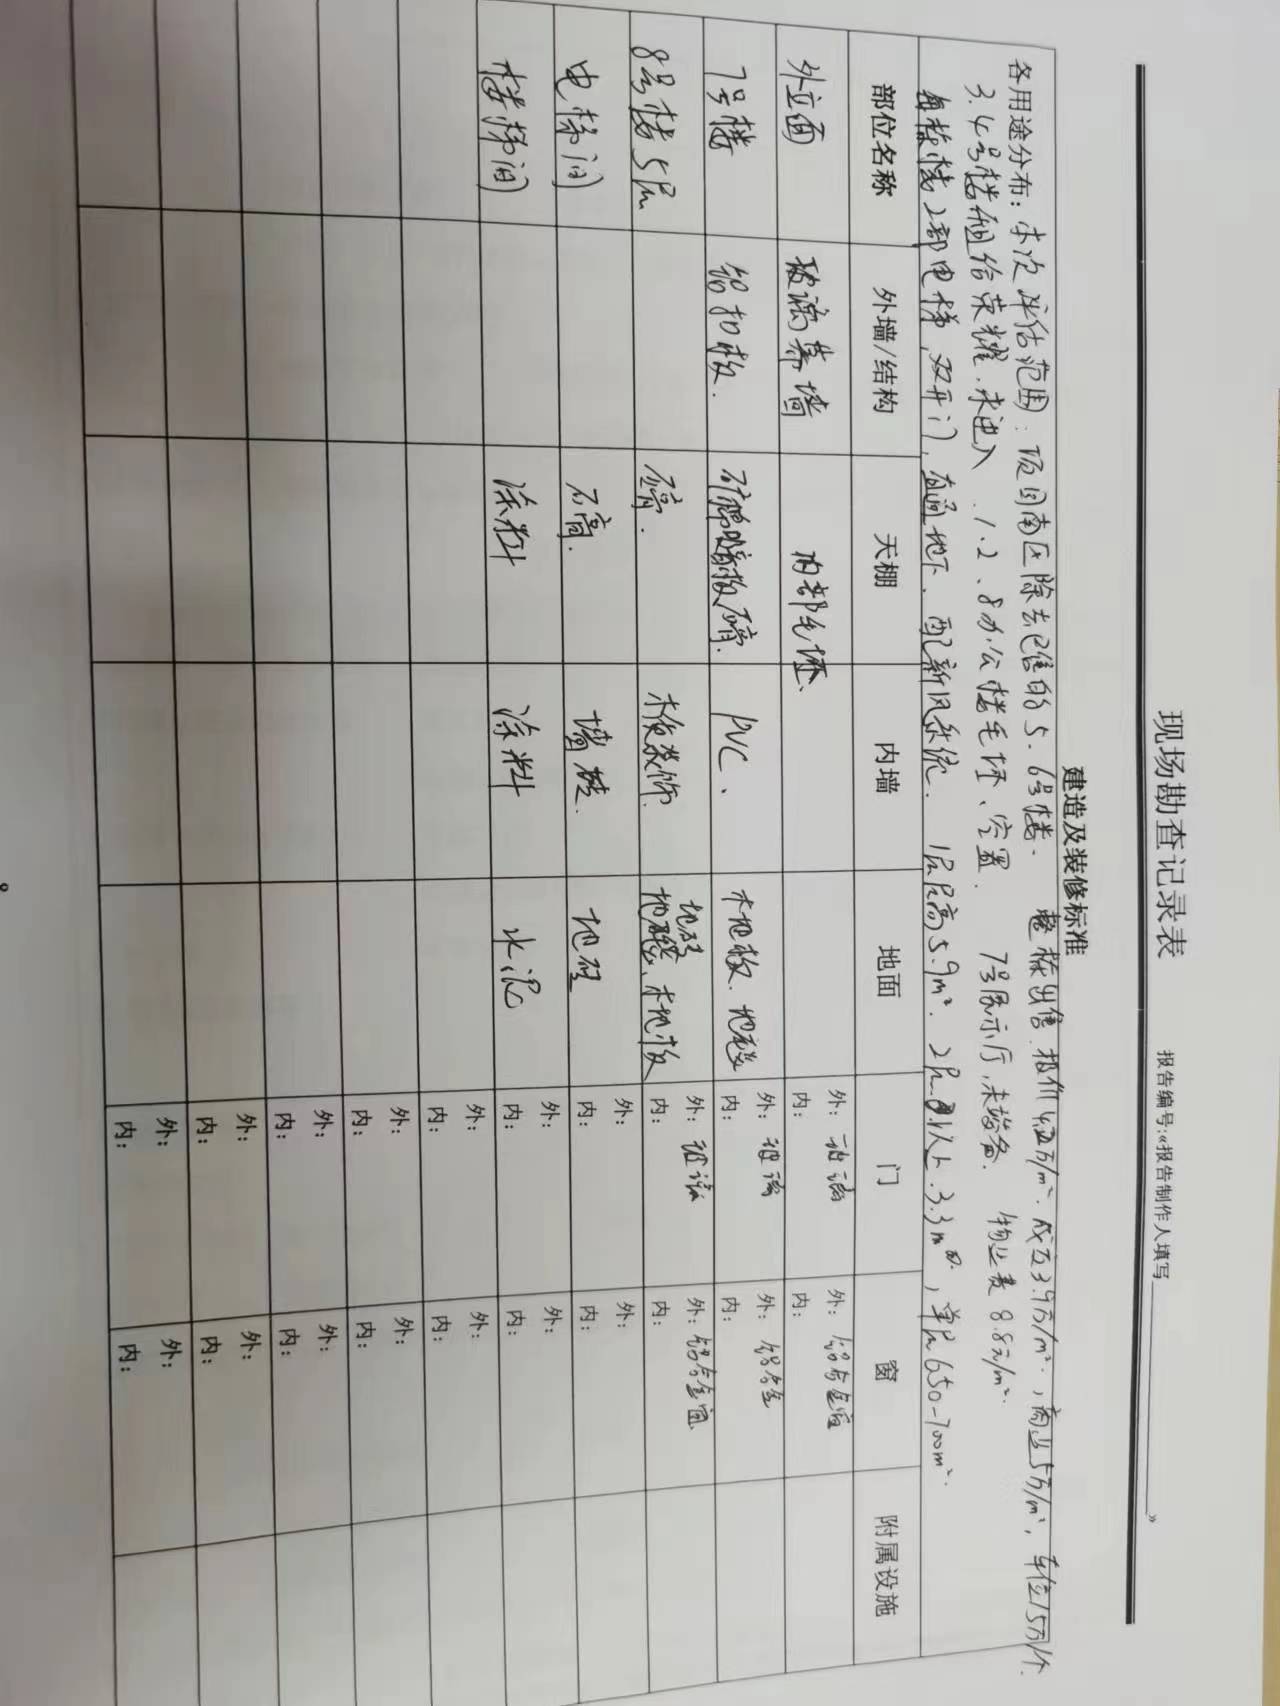 现场勘查记录表
报告编号:«报告制作人填写 »
建造及装修标准
各用途分布：本次评估范围：项目南区除去已售的5.6号楼. 整栋出售 报价 万/m². 成交3.9万/m²., 商业5万/m², 车位15万/个.
3.4号楼租给荣耀.未进入.1.2.8办公楼毛坯、空置. 7号展示厅,未 备. 物业费8.8元/m².
每栋楼2部电梯,双开门,直通地下.配新风系统. 1层层高5.9m². 2层及以上.3.3m , 单层650-700m².
部位名称 外墙/结构 天棚 内墙 地面 门 窗 附属设施
外立面 玻璃幕墙 内部毛坯、 外：玻璃 内： 外：铝合金窗 内：
7号楼 铝扣板. 矿棉吸音板石膏. PVC、 木地板.地毯 外：玻璃 内： 外：铝合金 内：
8号楼5层 石膏. 木质装饰. 地砖 地毯、木地板 外：玻璃 内： 外：铝合金窗 内：
电梯间 石膏. 墙砖. 地砖 外： 内： 外： 内：
楼梯间 涂料 涂料 水泥 外： 内： 外： 内：
外： 内： 外： 内：
外： 内： 外： 内：
外： 内： 外： 内：
外： 内： 外： 内：
外： 内： 外： 内：